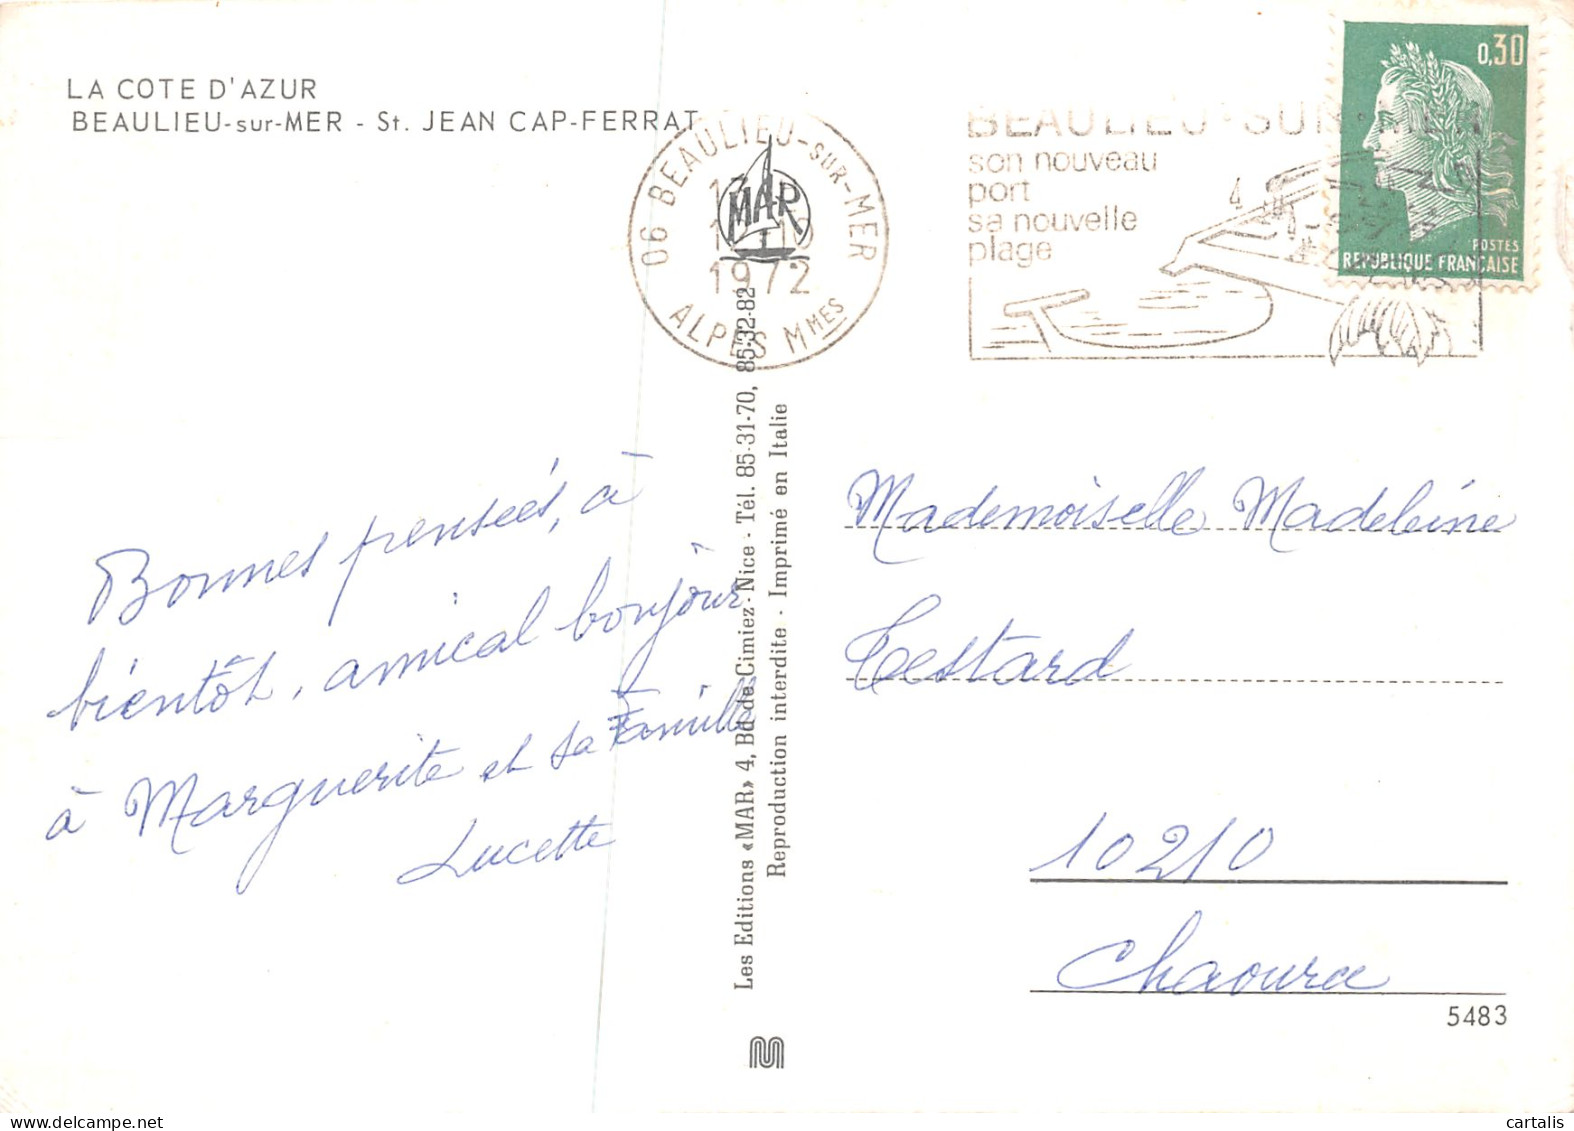 LA COTE D'AZUR
BEAULIEU-sur-MER - St. JEAN CAP-FERRAT
06 BEAULIEU-SUR-MER
1972
ALPES MMES
MAR
BEAULIEU-SUR-MER
son nouveau
port
sa nouvelle
plage
0,30
POSTES
REPUBLIQUE FRANÇAISE
Bonnes pensées, à
bientôt, amical bonjour
à Marguerite et sa Famille
Lucette
Les Editions «MAR» 4, Bd de Cimiez - Nice - Tél. 85-31-70, 85-32-82
Reproduction interdite - Imprimé en Italie
Mademoiselle Madeleine
Testard
10210
Chaource
5483
cartalis
www.delcampe.net